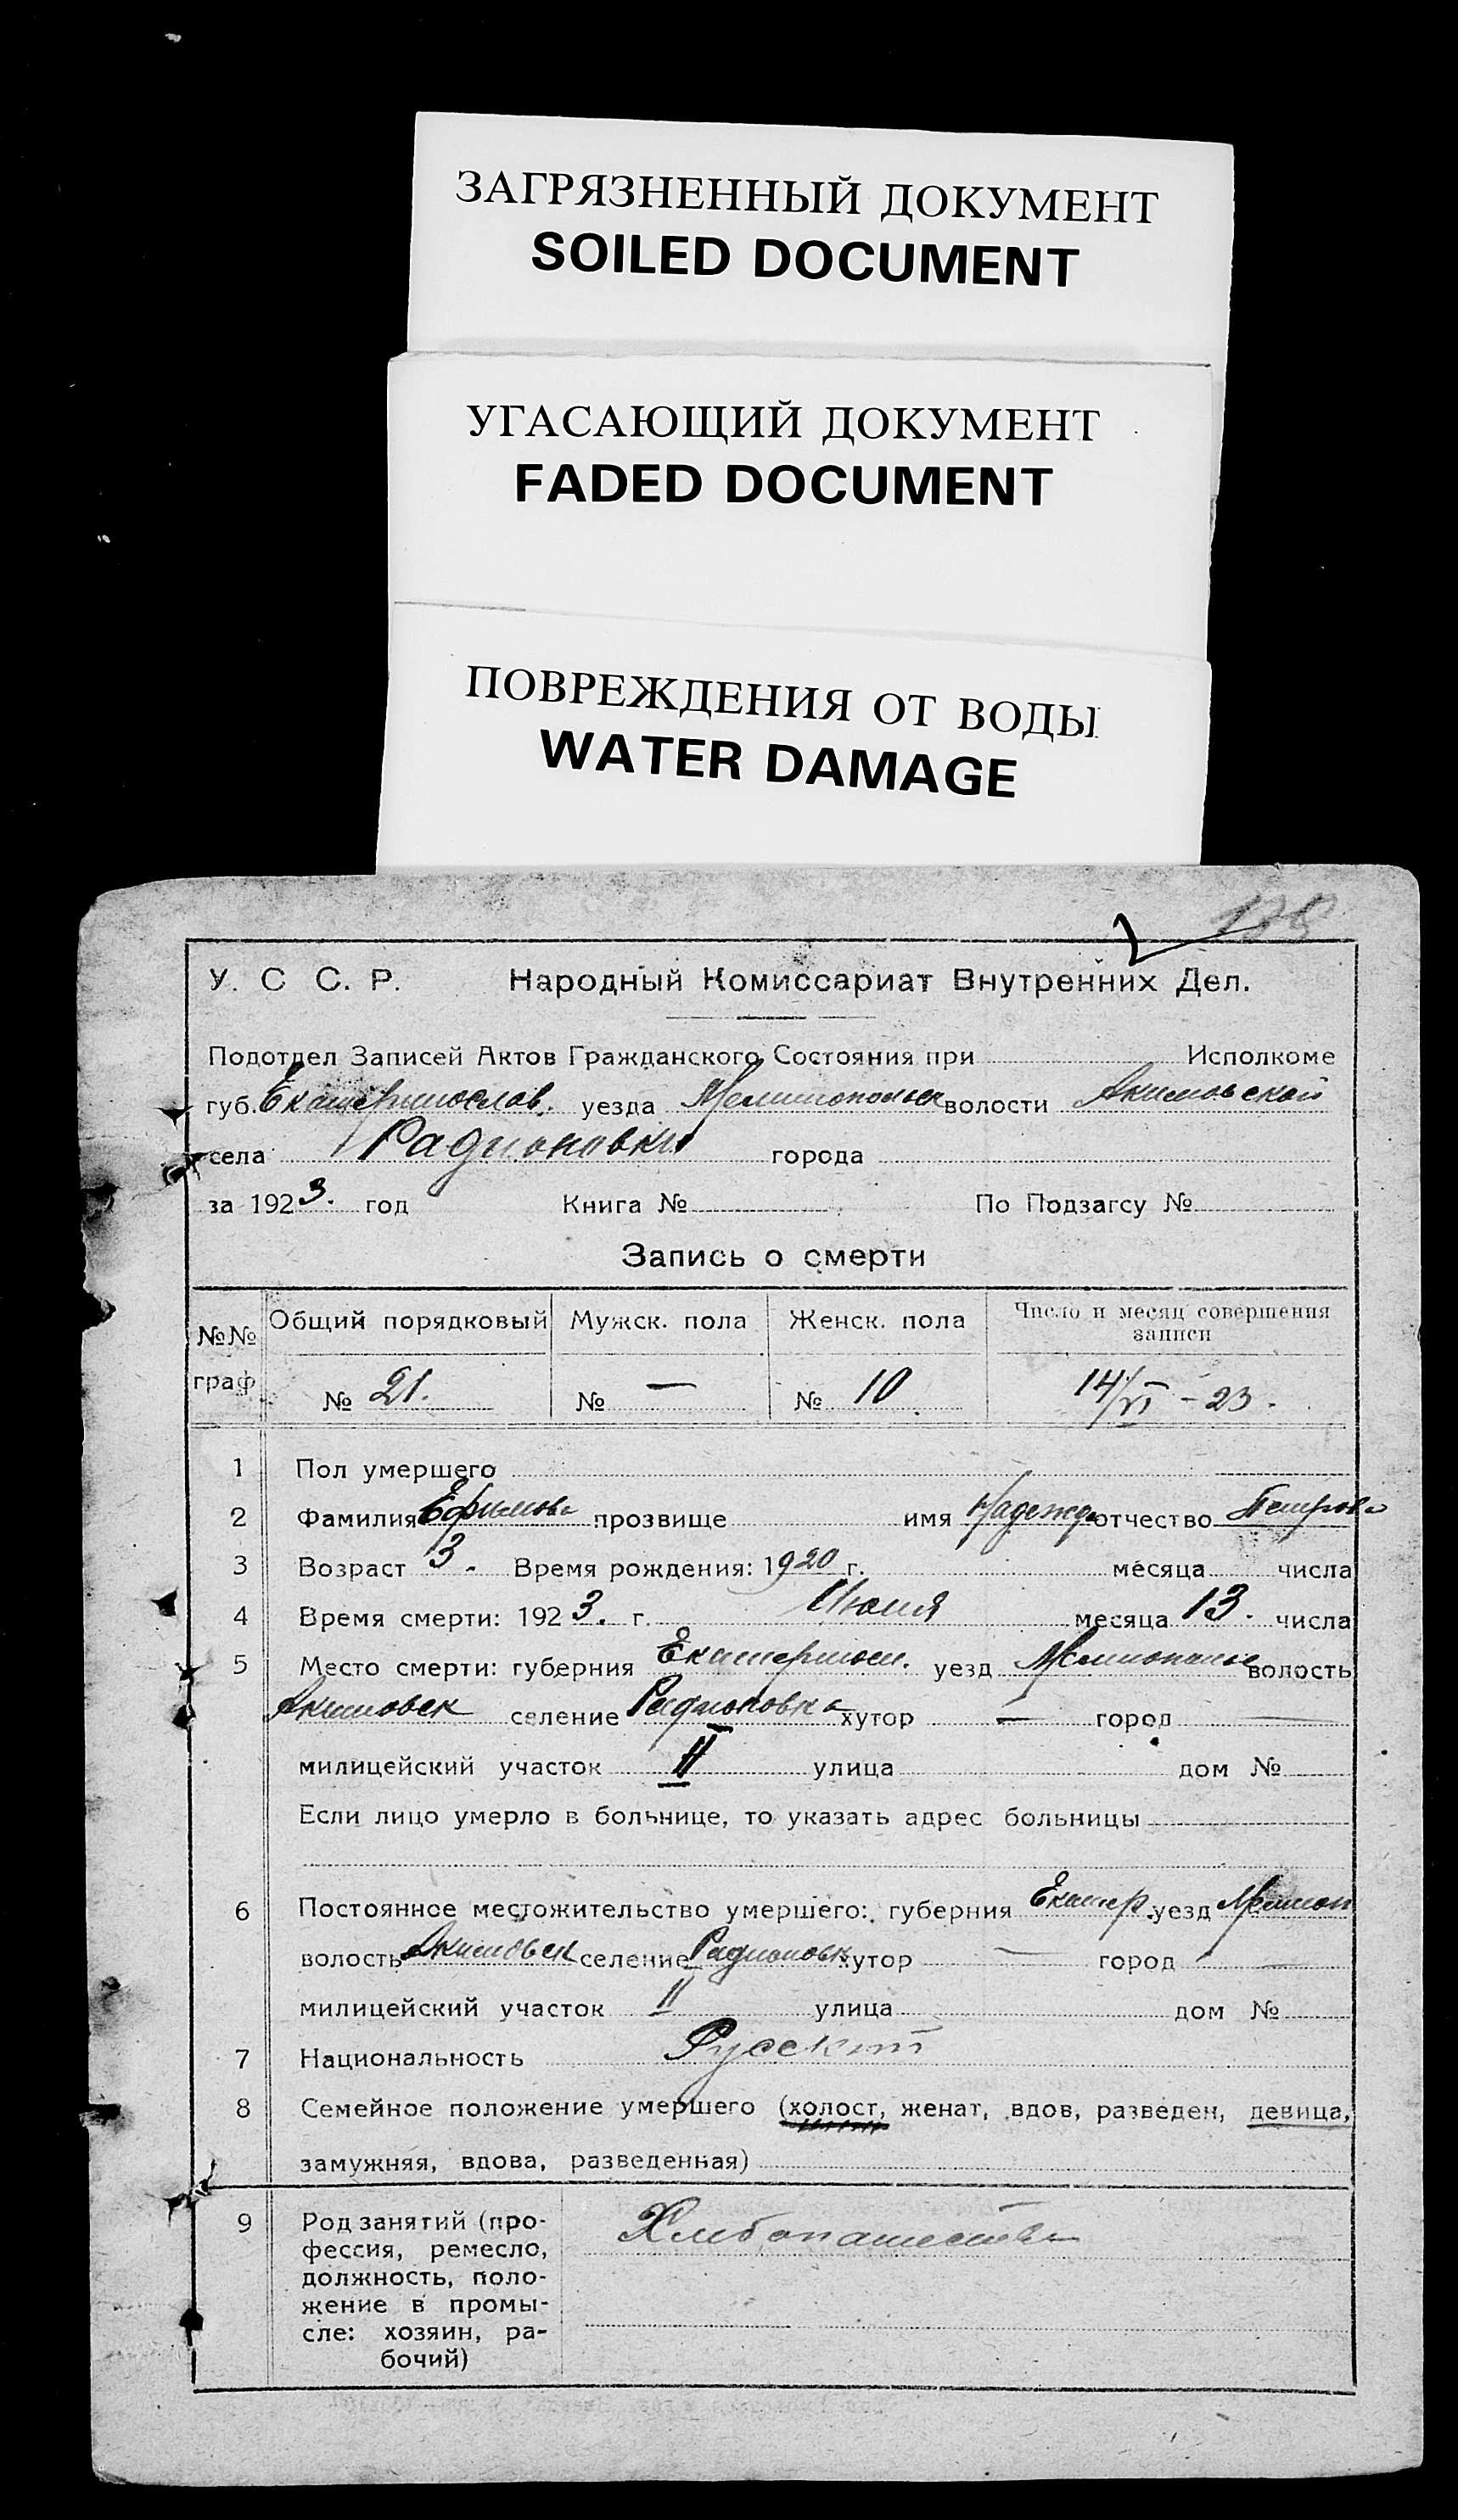 ЗАГРЯЗНЕННЫЙ ДОКУМЕНТ
SOILED DOCUMENT
УГАСАЮЩИЙ ДОКУМЕНТ
FADED DOCUMENT
ПОВРЕЖДЕНИЯ ОТ ВОДЫ
WATER DAMAGE
У. С С. Р. Народный Комиссариат Внутренних Дел.
Подотдел Записей Актов Гражданского Состояния при Исполкоме
губ. Екатеринослав. уезда Мелитопольск волости Акимовской
села Радионовки города
за 1923. год Книга № По Подзагсу №
Запись о смерти
№№ граф Общий порядковый Мужск. пола Женск. пола Число и месяц совершения записи
№ 21. № — № 10 14/VI - 23.
1 Пол умершего
2 Фамилия Ефимова прозвище имя Надежда отчество Петрова
3 Возраст 3. Время рождения: 1920 г. месяца числа
4 Время смерти: 1923. г. Июня месяца 13. числа
5 Место смерти: губерния Екатеринос. уезд Мелитополь волость
Акимовск селение Радионовка хутор — город —
милицейский участок II улица дом №
Если лицо умерло в больнице, то указать адрес больницы
6 Постоянное местожительство умершего: губерния Екатер. уезд Мелитоп
волость Акимовск селение Радионовк хутор — город —
милицейский участок II улица дом №
7 Национальность Русский
8 Семейное положение умершего (холост, женат, вдов, разведен, девица,
замужняя, вдова, разведенная)
9 Род занятий (про-
фессия, ремесло,
должность, поло-
жение в промы-
сле: хозяин, ра-
бочий)
Хлебопашество